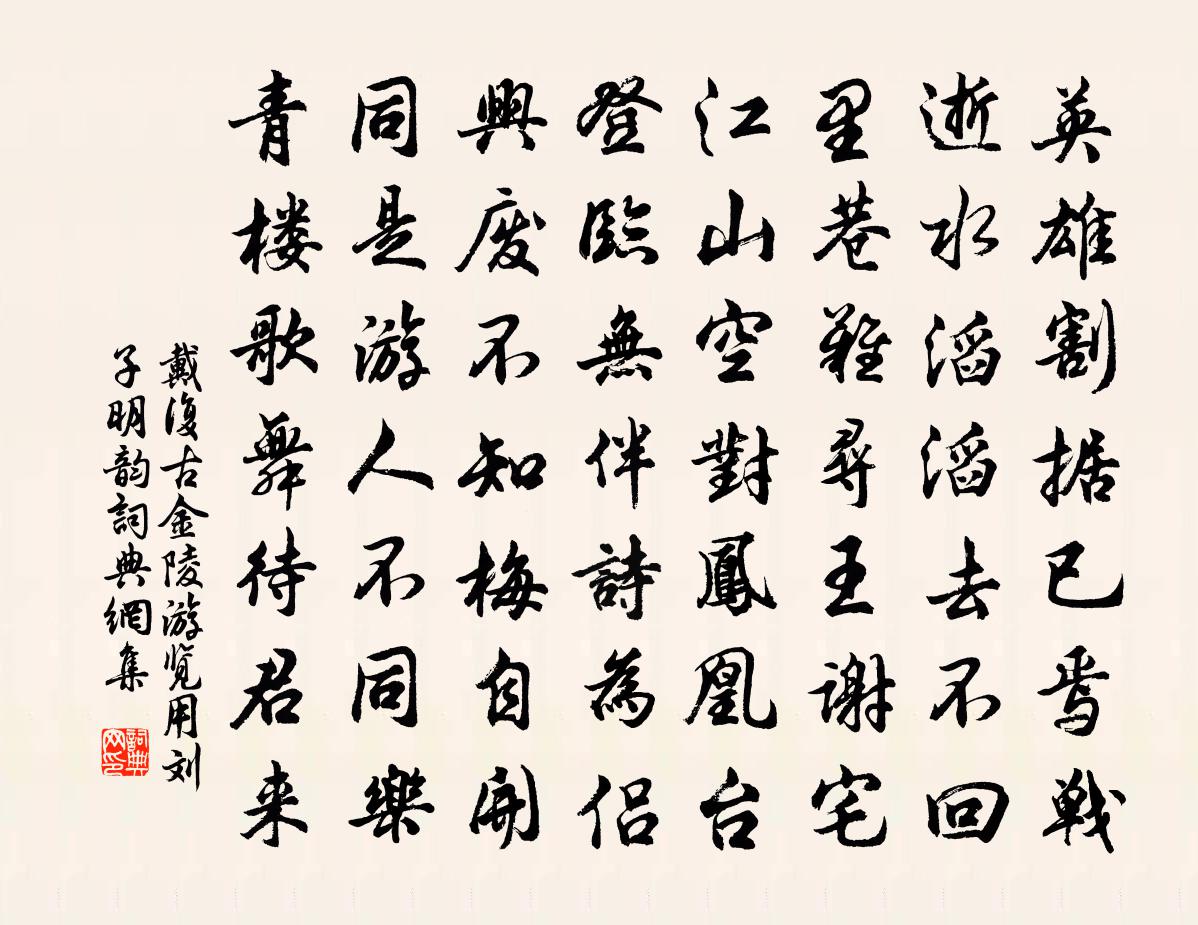 英雄割据已焉戦
逝水滔滔去不回
里巷難尋王谢宅
江山空對鳳凰台
登臨無伴詩為侣
興废不知梅自開
同是游人不同樂
青楼歌舞待君来
戴復古金陵游览用刘
子明韵詞典網集
詞典網印